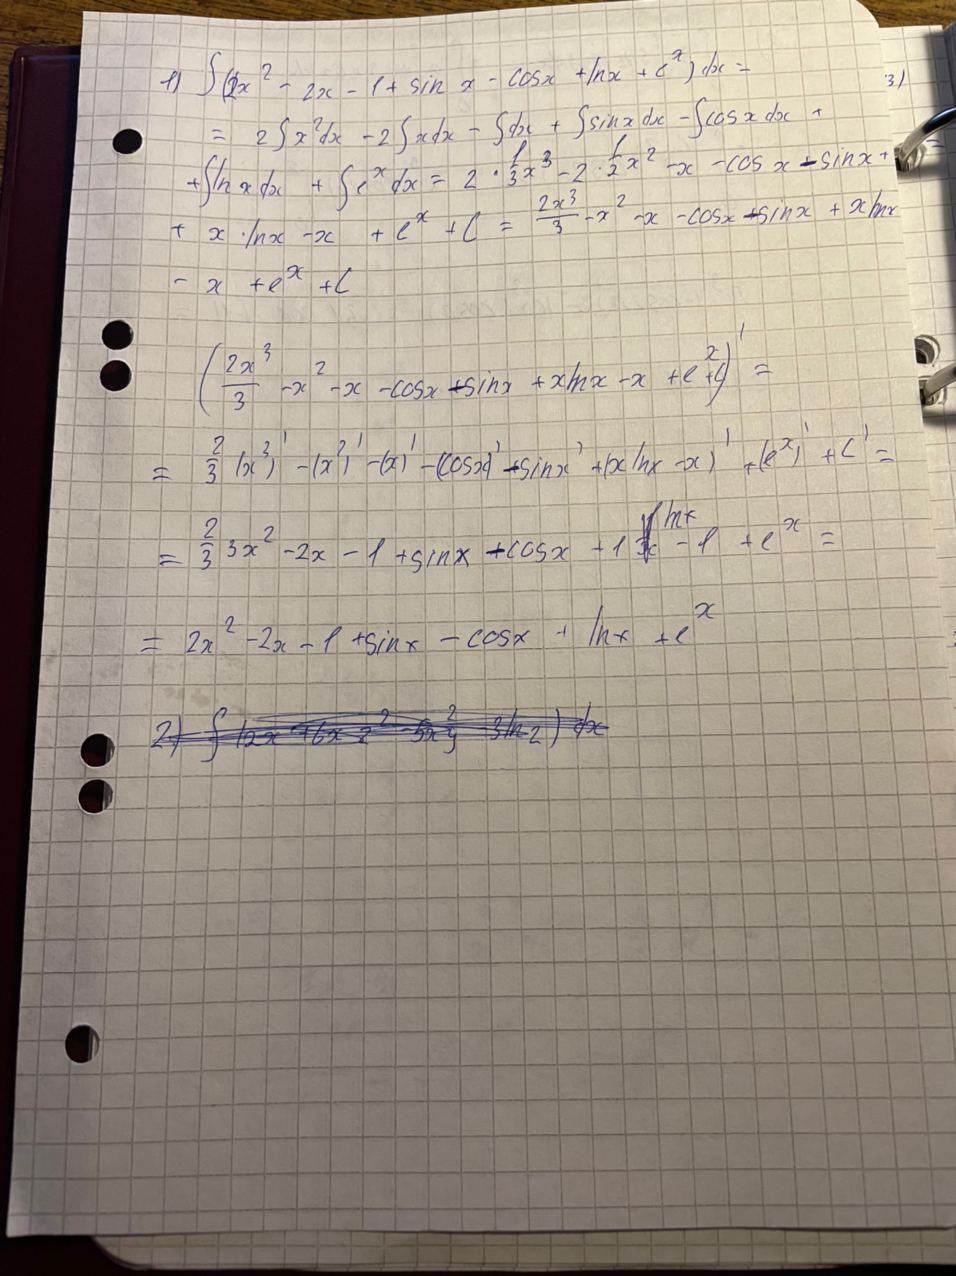 1) ∫(2x² - 2x - 1 + sin x - cosx + lnx + eˣ) dx =
3)
= 2∫x²dx - 2∫xdx - ∫dx + ∫sinx dx - ∫cosx dx +
+ ∫ln x dx + ∫eˣ dx = 2 · 1/3 x³ - 2 · 1/2 x² - x - cos x - sinx +
+ x · lnx - x + eˣ + C = 2x³/3 - x² - x - cosx - sinx + x lnx
- x + eˣ + C
(2x³/3 - x² - x - cosx - sinx + xlnx - x + eˣ + C)' =
= 2/3 (x³)' - (x²)' - (x)' - (cosx)' - sinx' + (x lnx - x)' + (eˣ)' + C' =
= 2/3 3x² - 2x - 1 + sinx - cosx + 1 lnx - 1 + eˣ =
= 2x² - 2x - 1 + sinx - cosx + lnx + eˣ